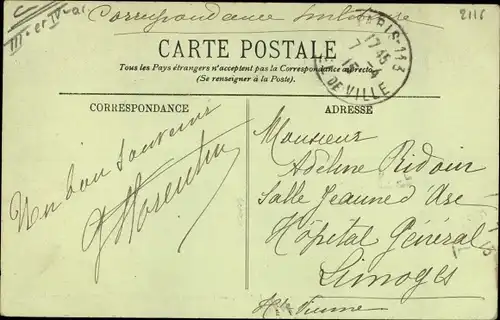 Correspondance Militaire
2116
IIIe et IVe ar.
PARIS-113
17 45
7 - 1
15
DE VILLE
CARTE POSTALE
Tous les Pays étrangers n'acceptent pas la Correspondance au recto
(Se renseigner à la Poste).
CORRESPONDANCE
Un bon souvenir
Florentin
ADRESSE
Monsieur
Adeline Ridoin
Salle Jeanne d'Arc
Hôpital Général
Limoges
Hte Vienne